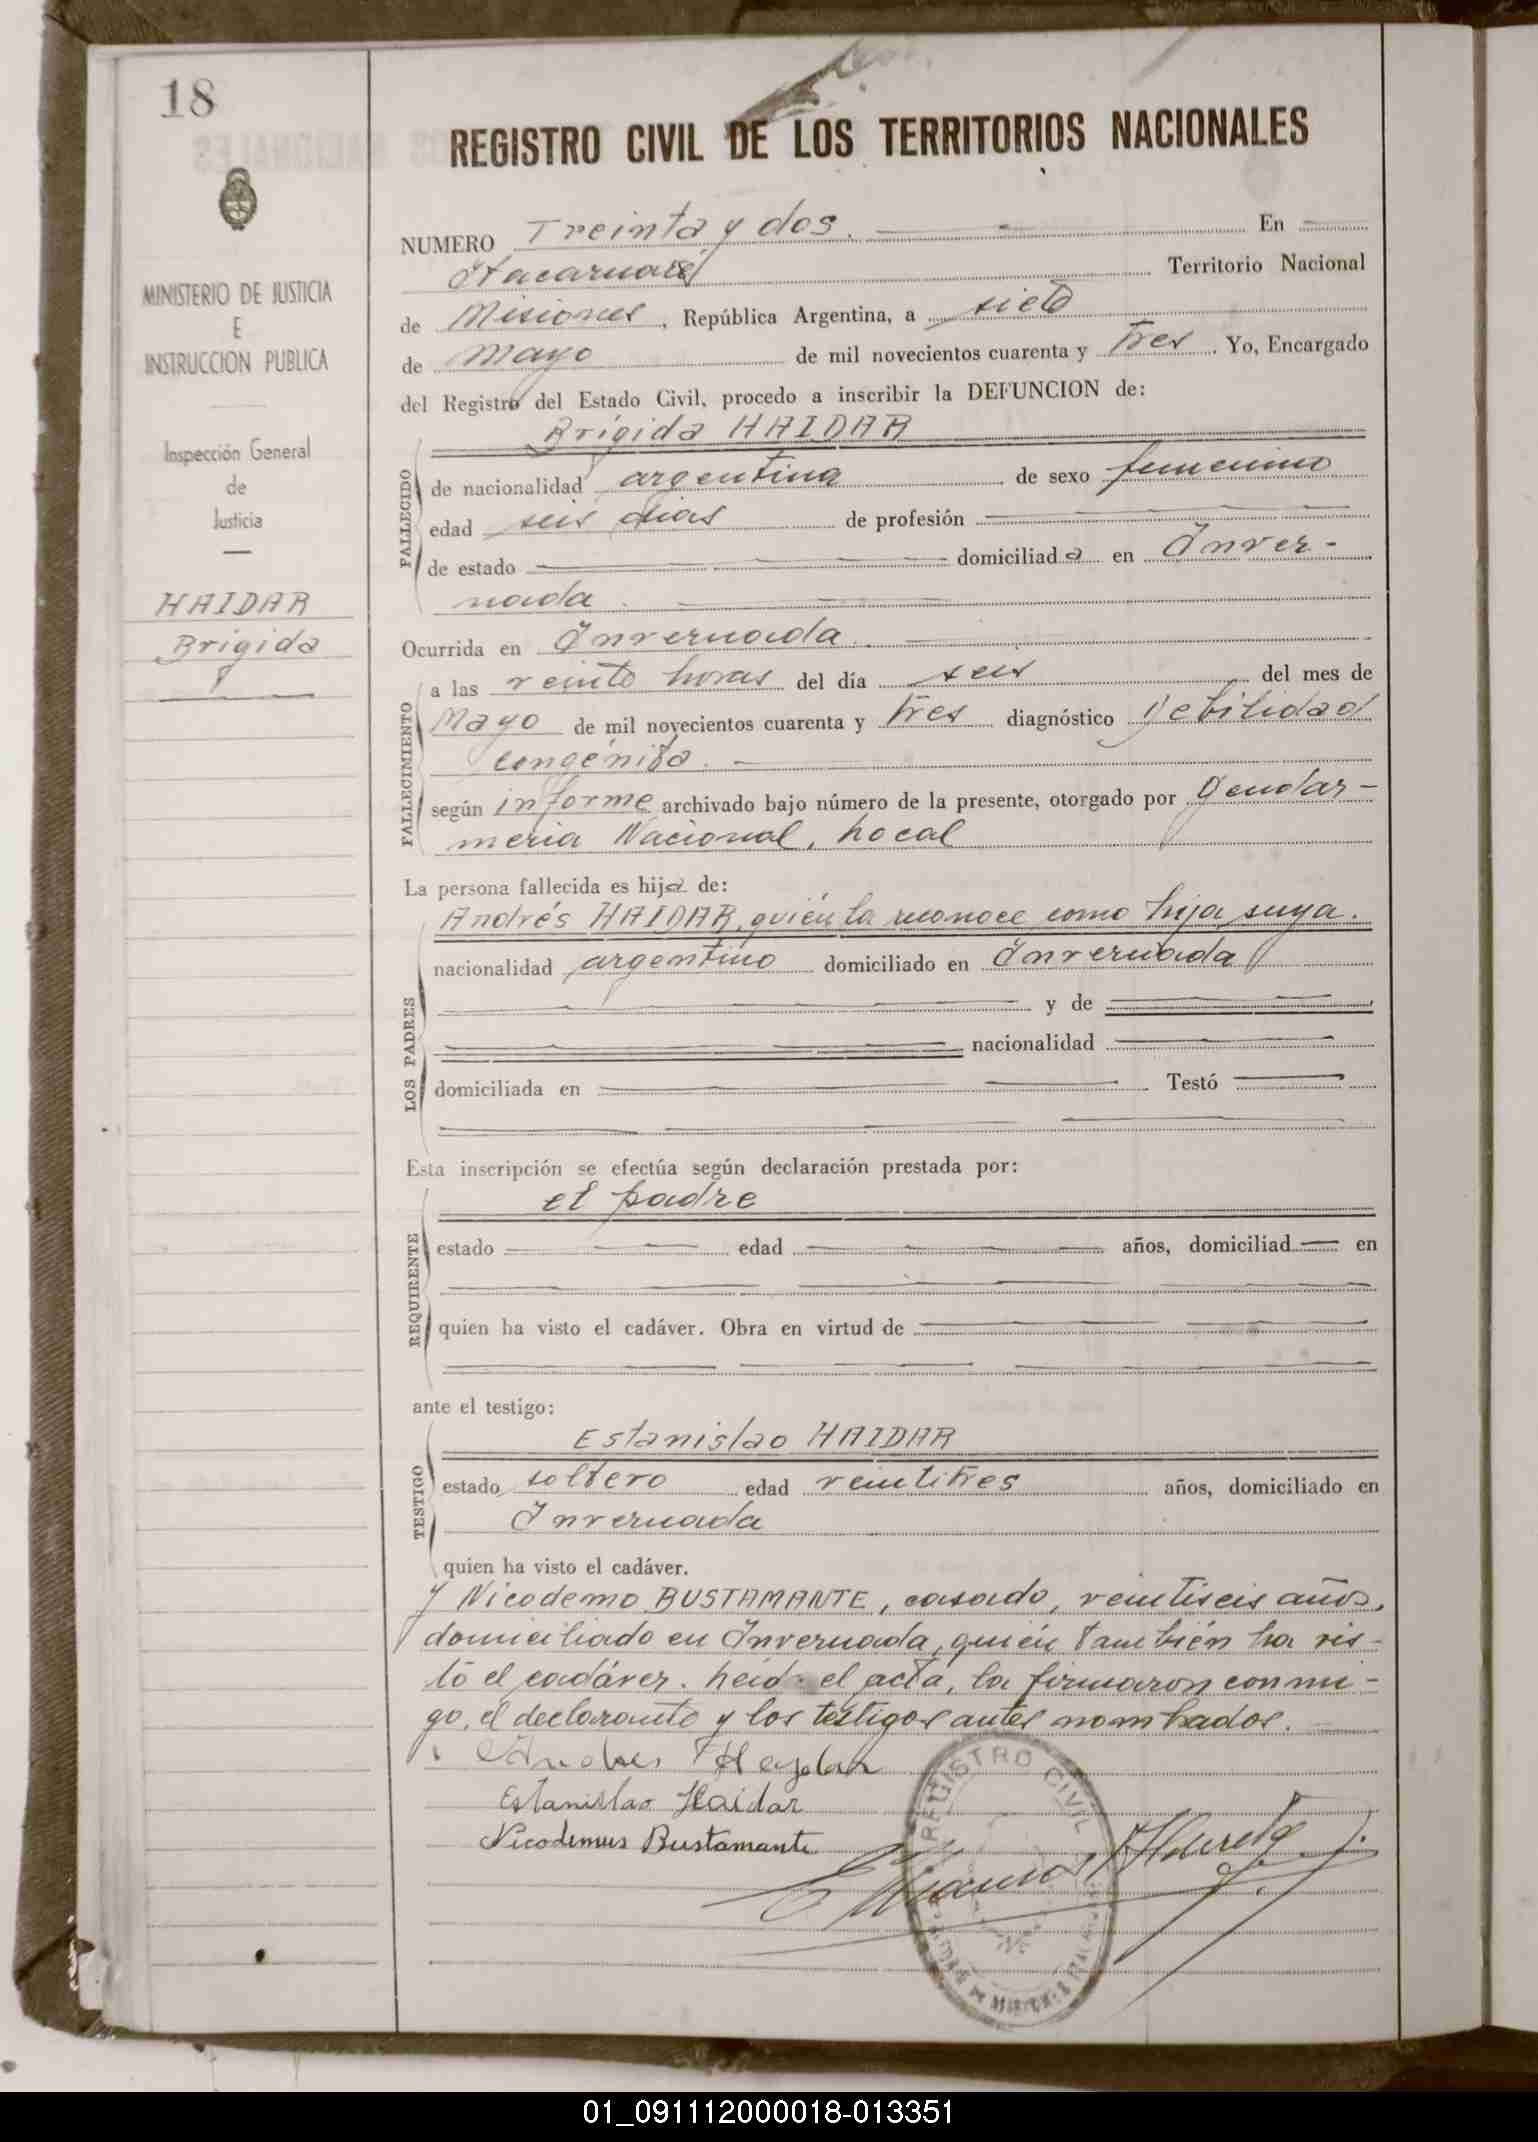 18
MINISTERIO DE JUSTICIA
E
INSTRUCCION PUBLICA
Inspección General
de
Justicia
HAIDAR
Brígida
REGISTRO CIVIL DE LOS TERRITORIOS NACIONALES
NUMERO Treinta y dos. En
Itacaruaré Territorio Nacional
de Misiones, República Argentina, a siete
de Mayo de mil novecientos cuarenta y Tres. Yo, Encargado
del Registro del Estado Civil, procedo a inscribir la DEFUNCION de:
Brígida HAIDAR
FALLECIDO
de nacionalidad argentina de sexo femenino
edad seis días de profesión
de estado domiciliada en Inver-
nada.
Ocurrida en Invernada.
FALLECIMIENTO
a las veinte horas del día seis del mes de
Mayo de mil novecientos cuarenta y Tres diagnóstico Debilidad
congénita.
según informe archivado bajo número de la presente, otorgado por Gendar-
mería Nacional, Local
La persona fallecida es hija de:
LOS PADRES
Andrés HAIDAR, quién la reconoce como hija suya.
nacionalidad argentino domiciliado en Invernada
y de
nacionalidad
domiciliada en Testó
Esta inscripción se efectúa según declaración prestada por:
REQUIRENTE
el padre
estado edad años, domiciliad en
quien ha visto el cadáver. Obra en virtud de
ante el testigo:
TESTIGO
Estanislao HAIDAR
estado soltero edad veintitres años, domiciliado en
Invernada
quien ha visto el cadáver.
y Nicodemo BUSTAMANTE, casado, veintiseis años,
domiciliado en Invernada, quién también ha vis-
to el cadáver. Leída el acta, la firmaron conmi-
go, el declarante y los testigos antes nombrados.
Andres Haydar
Estanislao Haidar
Nicodemus Bustamante
REGISTRO CIVIL
01_091112000018-013351